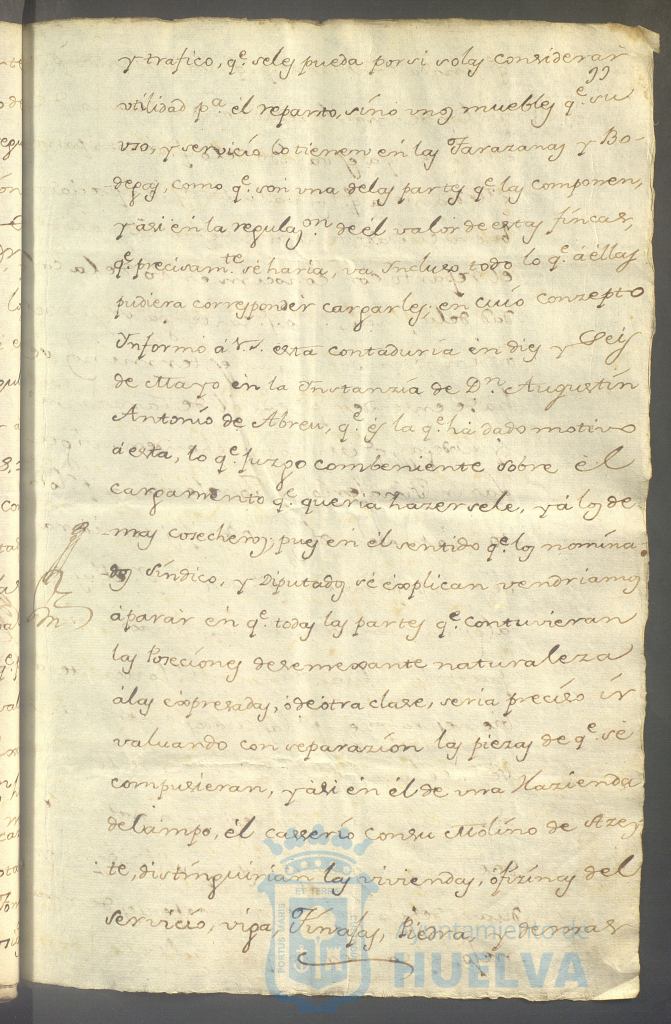 y trafico, q.e seles pueda por si solas considerar
99
utilidad p.a el reparto, sino unos muebles q.e su
uso, y servicio lo tienen en las Tarazanas y Bo-
degas, como q.e son una delas partes q.e las componen,
y asi en la regulaz.on de él valor de estas fincas,
q.e precisam.te se haria, va incluso todo lo q.e á éllas
pudiera corresponder cargarles; en cuio conzepto
Informó á V.S. esta contaduria en dies y Seis
de Mayo en la Instanzia de D.n Augustin
Antonio de Abreu, q.e es la q.e ha dado motivo
á esta, lo q.e juzgo combeniente sobre él
cargamento q.e queria hazersele, y á los de-
mas cosecheros; pues en él sentido q.e los nomina-
dos Sindico, y Diputados se explican vendriamos
á parar en q.e todas las partes q.e contuvieran
las Poseciones de semexante naturaleza
álas expresadas, ó de otra clase, seria preciso ir
valuando con separazion las piezas de q.e se
compusieran, y asi en él de una Hazienda
del campo, él casserio con su Molino de Azey-
te, distinguirian las viviendas, ofizinas del
servicio, viga, Tinajas, Piedra, y demas
Ayuntamiento de
HUELVA
PORTUS MARIS
ET TERRE